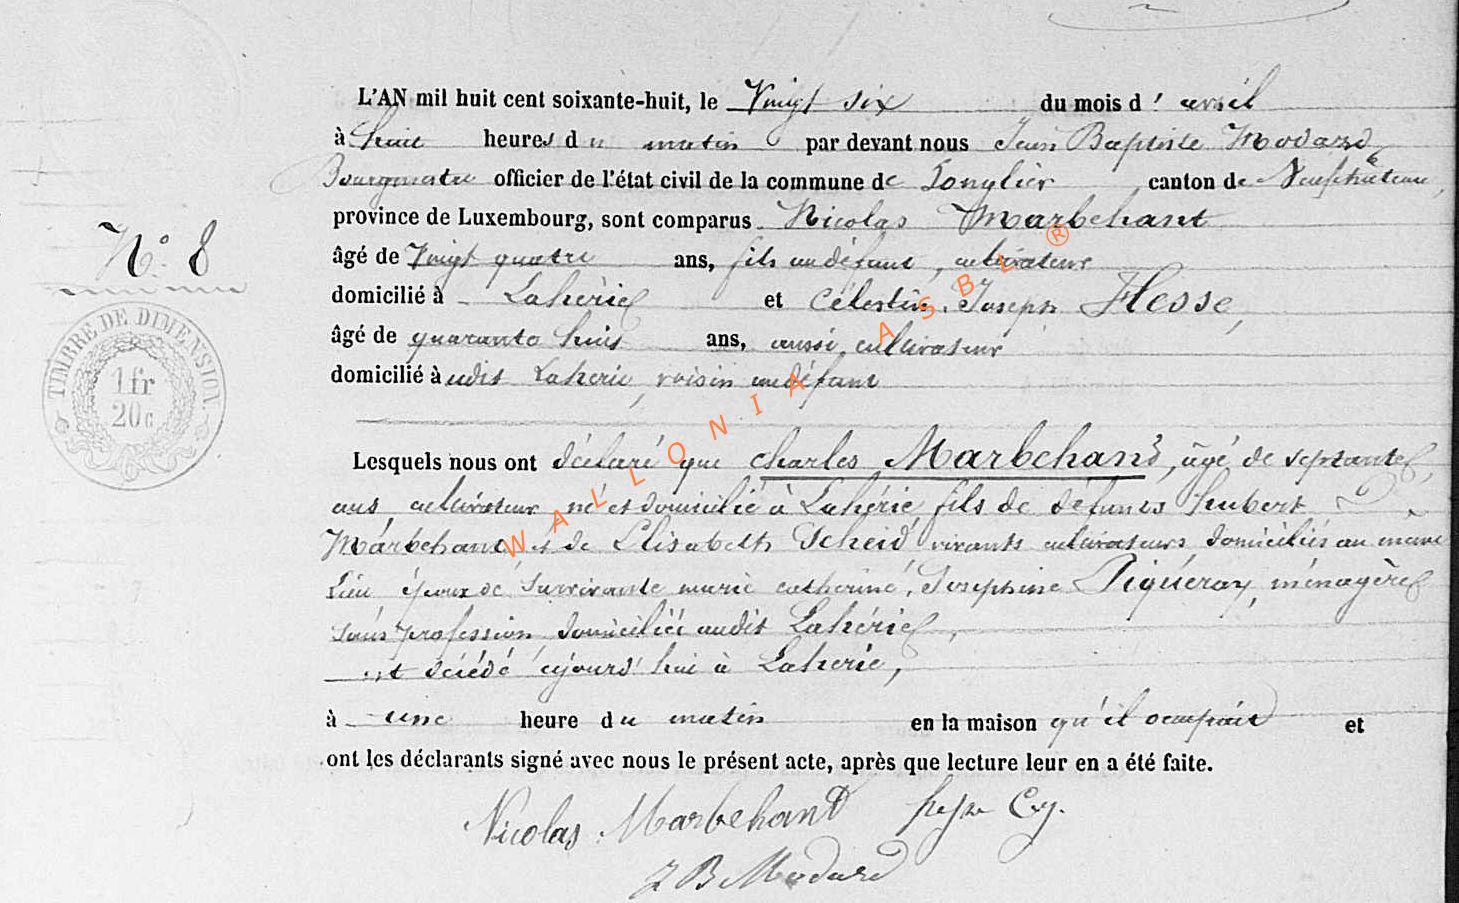 L'AN mil huit cent soixante-huit, le Vingt six du mois d' avril
à huit heures du matin par devant nous Jean Baptiste Modard
Bourgmestre officier de l'état civil de la commune de Longlier canton de Neufchateau,
province de Luxembourg, sont comparus Nicolas Marbehant
N.º 8
âgé de Vingt quatre ans, fils du défunt, cultivateur
domicilié à Lahérie et Célestin Joseph Hesse,
TIMBRE DE DIMENSION.
1 fr
20 c
âgé de quarante huit ans, aussi cultivateur
domicilié à udit Laherie, voisin du défunt
Lesquels nous ont déclaré que Charles Marbehand, âgé de septante
ans, cultivateur né et domicilié à Lahérie fils de défunts hubert
Marbehand et de Elisabeth Scheid vivants cultivateurs domiciliés au meme
lieu époux de survivante marie catherine Josephine Piqueray, ménagère
sans profession domiciliée audit Lahérie,
est décédé cejourd'hui à Laherie,
à une heure du matin en la maison qu'il occupait et
ont les déclarants signé avec nous le présent acte, après que lecture leur en a été faite.
Nicolas Marbehant hesse C.j.
J B Modard
WALLONIA ASBL ®